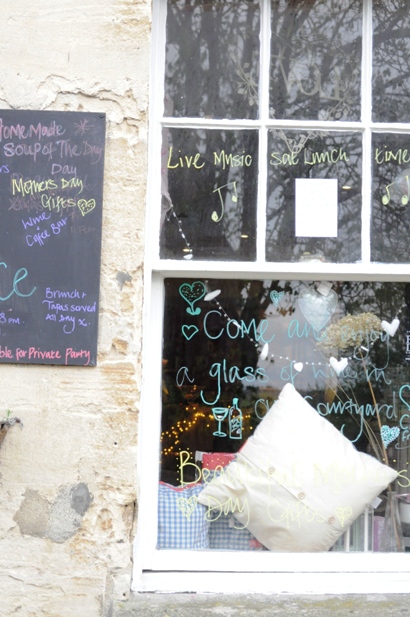 Home Made
Soup of The Day
Day
Mothers Day
Gifts
Wine
Coffee Bar
Brunch +
Tapas served
All Day x
8pm
ble for Private Party
Live Music
Sat Lunch
time
Come and enjoy
a glass of wine in
Courtyard
Day Gifts